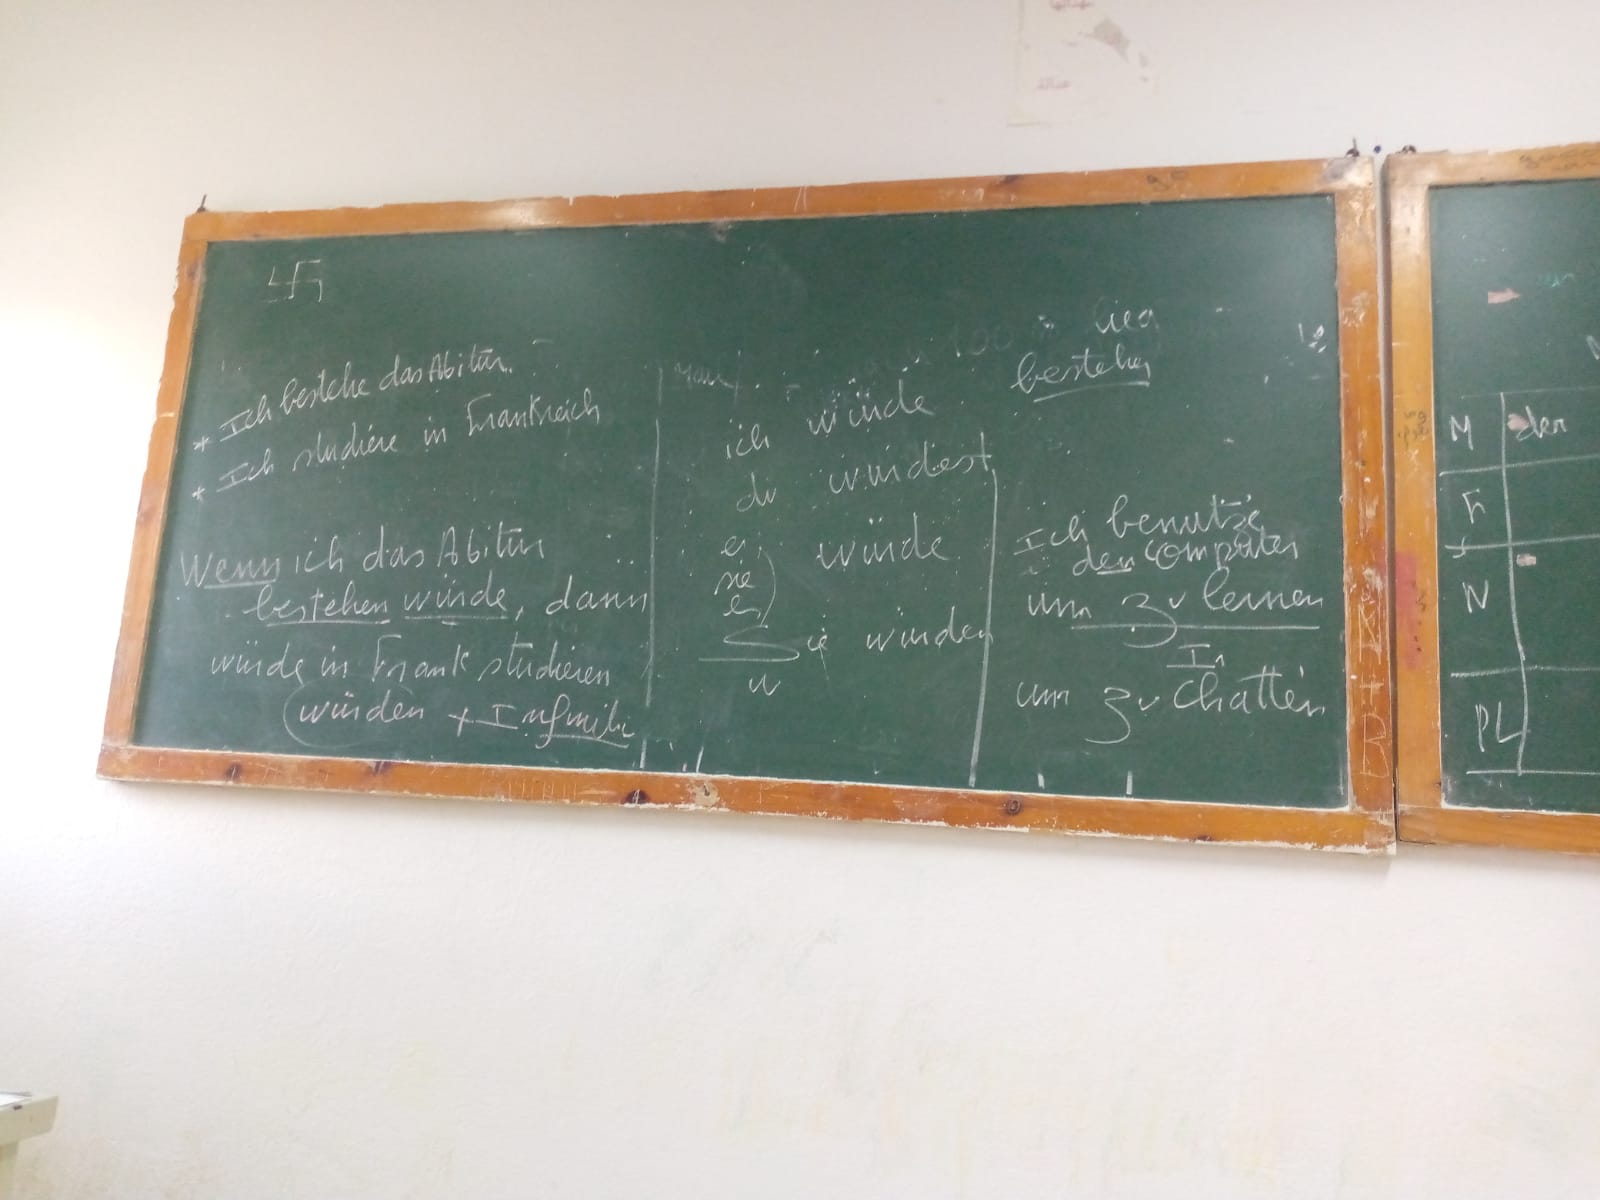 * Ich bestehe das Abitur.
* Ich studiere in Frankreich
Wenn ich das Abitur
bestehen würde, dann
würde in Frank studieren
(würden + Infinitiv
ich würde
du würdest
er
sie
es
würde
Sie würden
bestehen
Ich benutze
den Computer
um zu lernen
In
um zu chatten
M der
F
N
PL